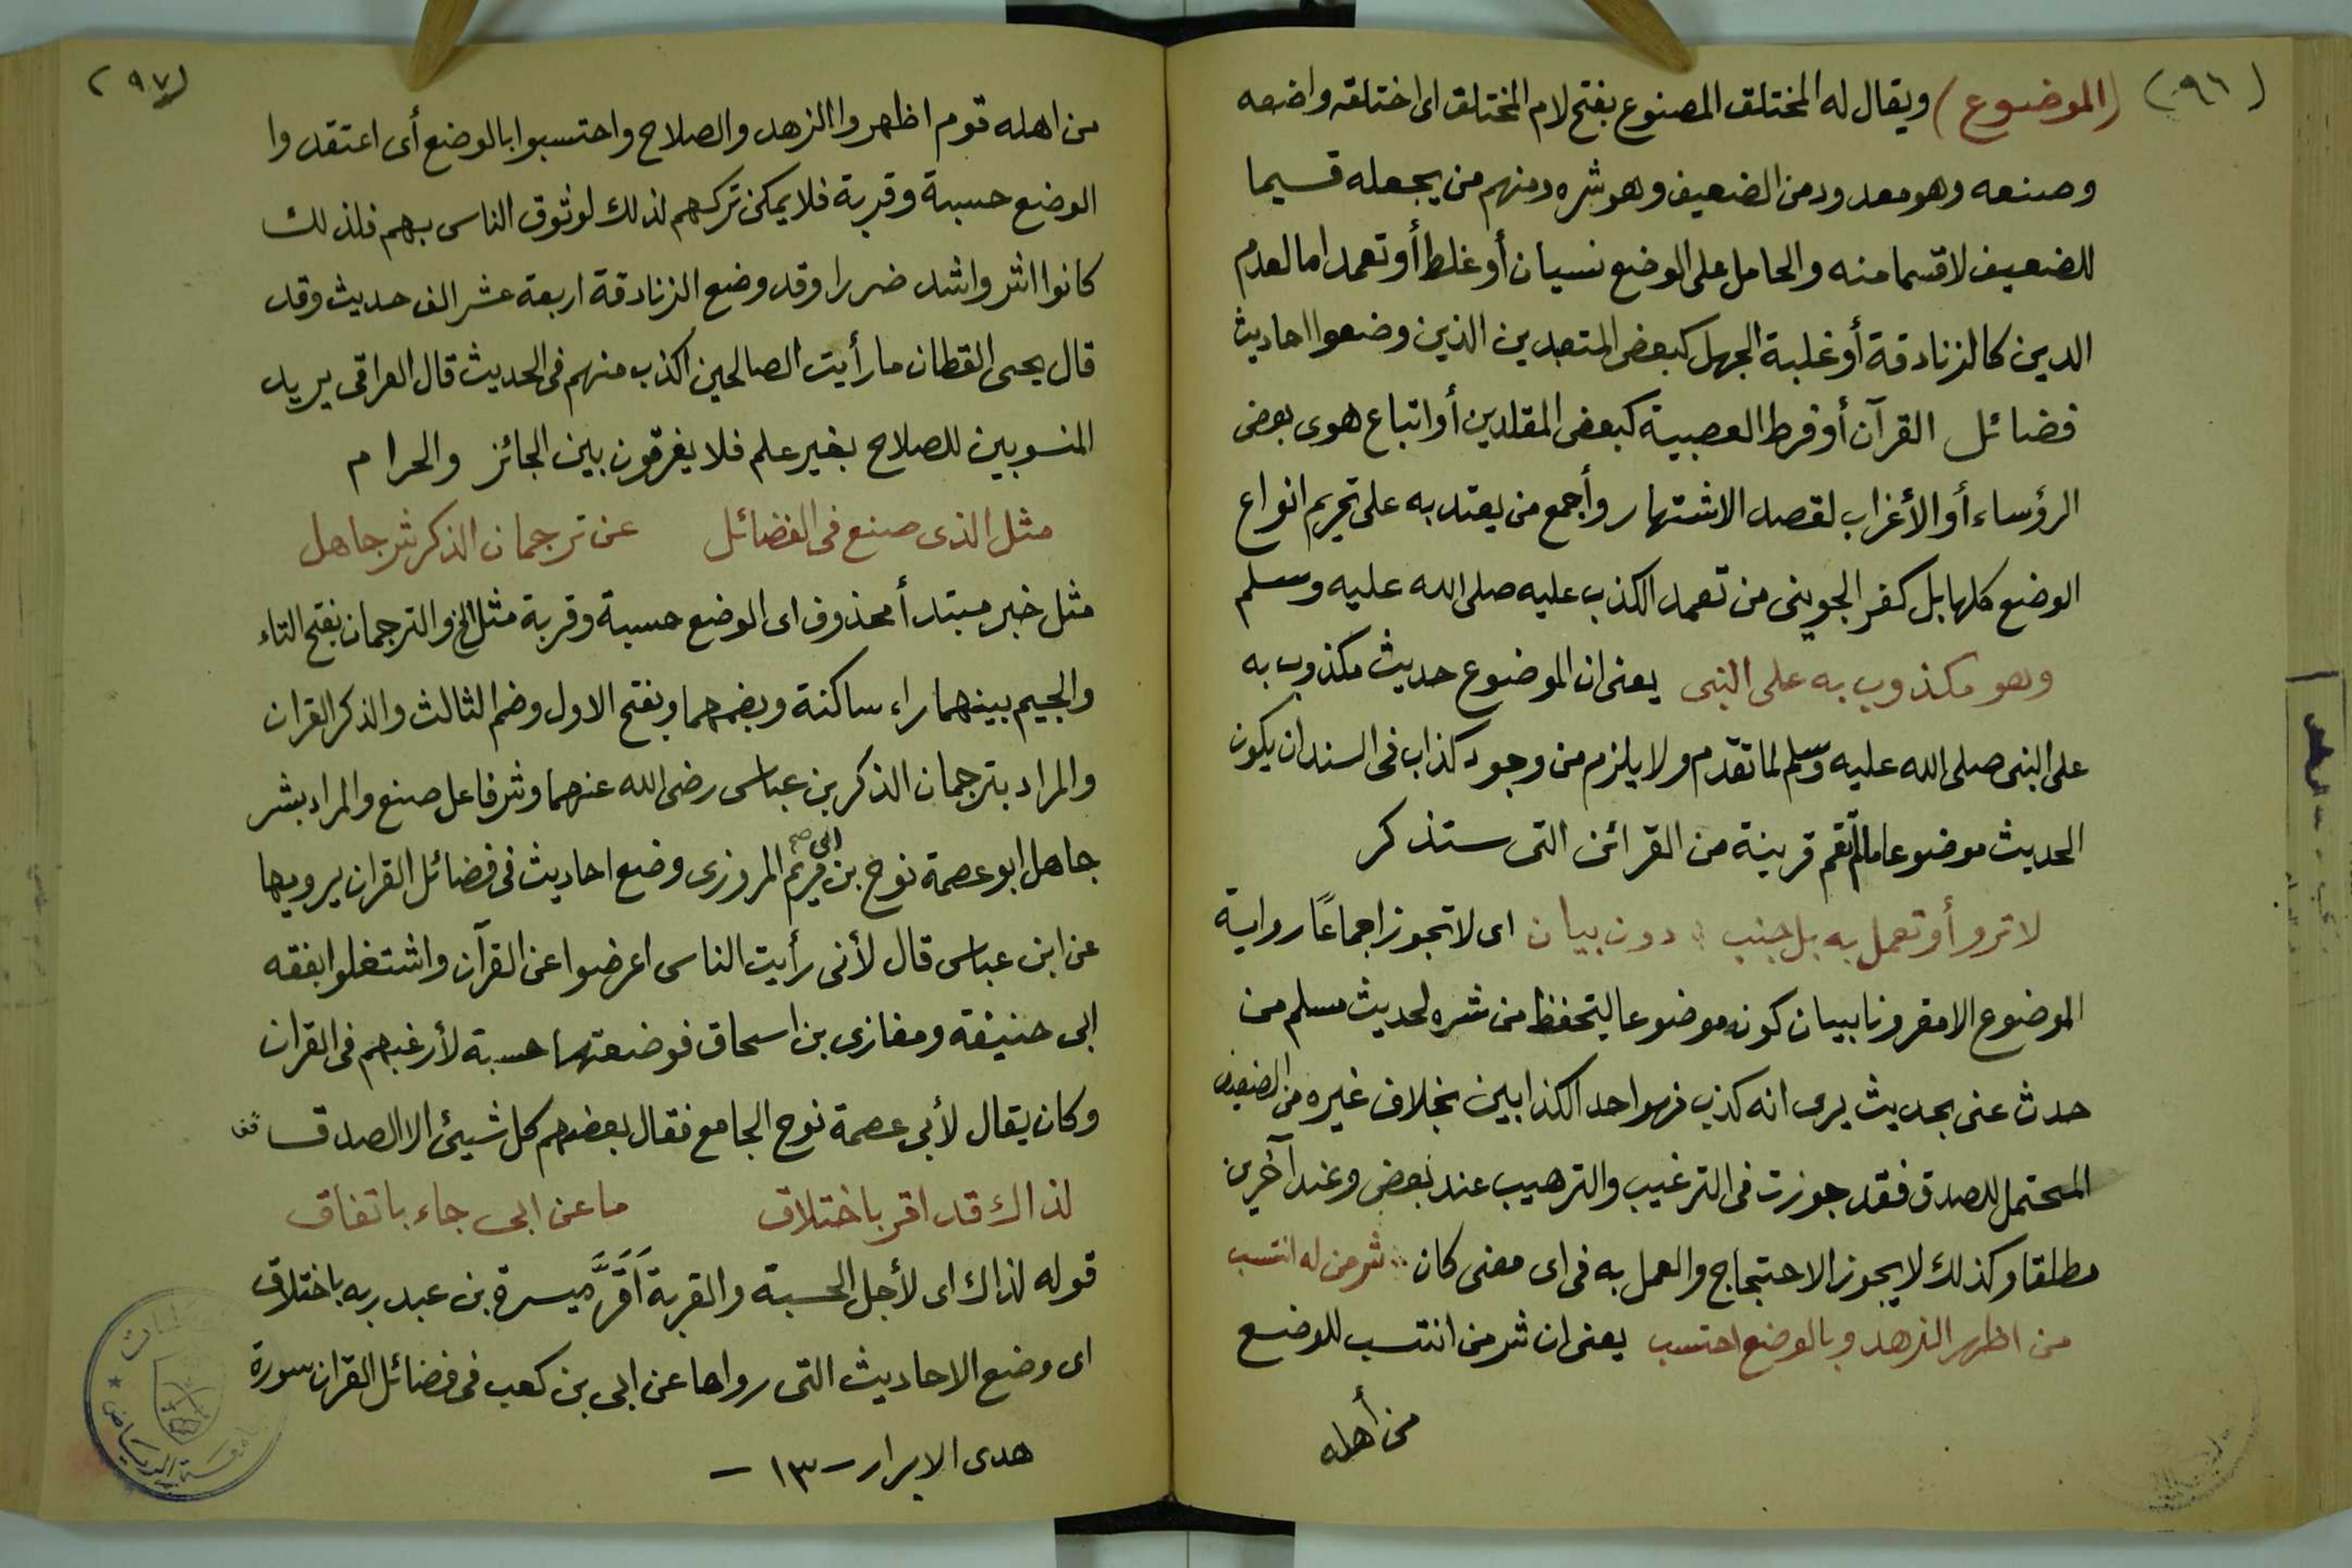 (٩٦)
(الموضوع) ويقال له المختلق المصنوع بفتح لام المختلق اى اختلقه واضعه
وصنعه وهو معدود من الضعيف وهو شره ومنهم من يجعله قسيما
للضعيف لا قسما منه والحامل على الوضع نسيان أو غلط أو تعمد اما لعدم
الدين كالزنادقة أو غلبة الجهل كبعض المتعبدين الذين وضعوا احاديث
فضائل القرآن أو فرط العصبية كبعض المقلدين أو اتباع هوى بعض
الرؤساء أو الأغراب لقصد الاشتهار وأجمع من يعتد به على تحريم انواع
الوضع كلها بل كفر الجوينى من تعمد الكذب عليه صلى الله عليه وسلم
وهو مكذوب به على النبى يعنى ان الموضوع حديث مكذوب به
على النبى صلى الله عليه وسلم لما تقدم ولا يلزم من وجود كذاب فى السند ان يكون
الحديث موضوعا مالم تقم قرينة من القرائن التى ستذكر
لا ترو أو تعمل به بل جنب ؞ دون بيان اى لا تجوز اجماعًا رواية
الموضوع الا مقرونا ببيان كونه موضوعا ليتحفظ من شره لحديث مسلم من
حدث عنى بحديث يرى انه كذب فهو احد الكذابين بخلاف غيره من الضعيف
المحتمل للصدق فقد جوزت فى الترغيب والترهيب عند بعض وعند آخرين
مطلقا وكذلك لا يجوز الاحتجاج والعمل به فى اى معنى كان ؞ شر من له انتسب
من اظهر الزهد وبالوضع احتسب يعنى ان شر من انتسب للوضع
من أهله
(٩٧)
من اهله قوم اظهروا الزهد والصلاح واحتسبوا بالوضع أى اعتقدوا
الوضع حسبة وقربة فلا يمكن تركهم لذلك لوثوق الناس بهم فلذلك
كانوا اشر واشد ضررا وقد وضع الزنادقة اربعة عشر الف حديث وقد
قال يحيى القطان ما رأيت الصالحين اكذب منهم فى الحديث قال العراقى يريد
المنسوبين للصلاح بغير علم فلا يفرقون بين الجائز والحرام
مثل الذى صنع فى الفضائل عن ترجمان الذكر شر جاهل
مثل خبر مبتدأ محذوف اى الوضع حسبة وقربة مثل الخ والترجمان بفتح التاء
والجيم بينهما راء ساكنة وبضمهما وبفتح الاول وضم الثالث والذكر القران
والمراد بترجمان الذكر بن عباس رضى الله عنهما وشر فاعل صنع والمراد بشر
جاهل ابو عصمة نوح بن ابى مريم المروزى وضع احاديث فى فضائل القران يرويها
عن ابن عباس قال لأنى رأيت الناس اعرضوا عن القرآن واشتغلوا بفقه
ابى حنيفة ومغازى بن اسحاق فوضعتها حسبة لأرغبهم فى القران
وكان يقال لأبى عصمة نوح الجامع فقال بعضهم كل شيئ الا الصدق
لذاك قد اقر باختلاق ما عن ابى جاء باتفاق
قوله لذاك اى لأجل الحسبة والقربة اَقَرَّ ميسرة بن عبد ربه باختلاق
اى وضع الاحاديث التى رواها عن ابى بن كعب فى فضائل القران سورة
هدى الابرار - ١٣ -